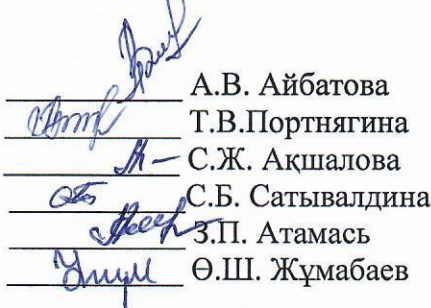 А.В. Айбатова
Т.В.Портнягина
С.Ж. Ақшалова
С.Б. Сатывалдина
З.П. Атамась
Ө.Ш. Жұмабаев